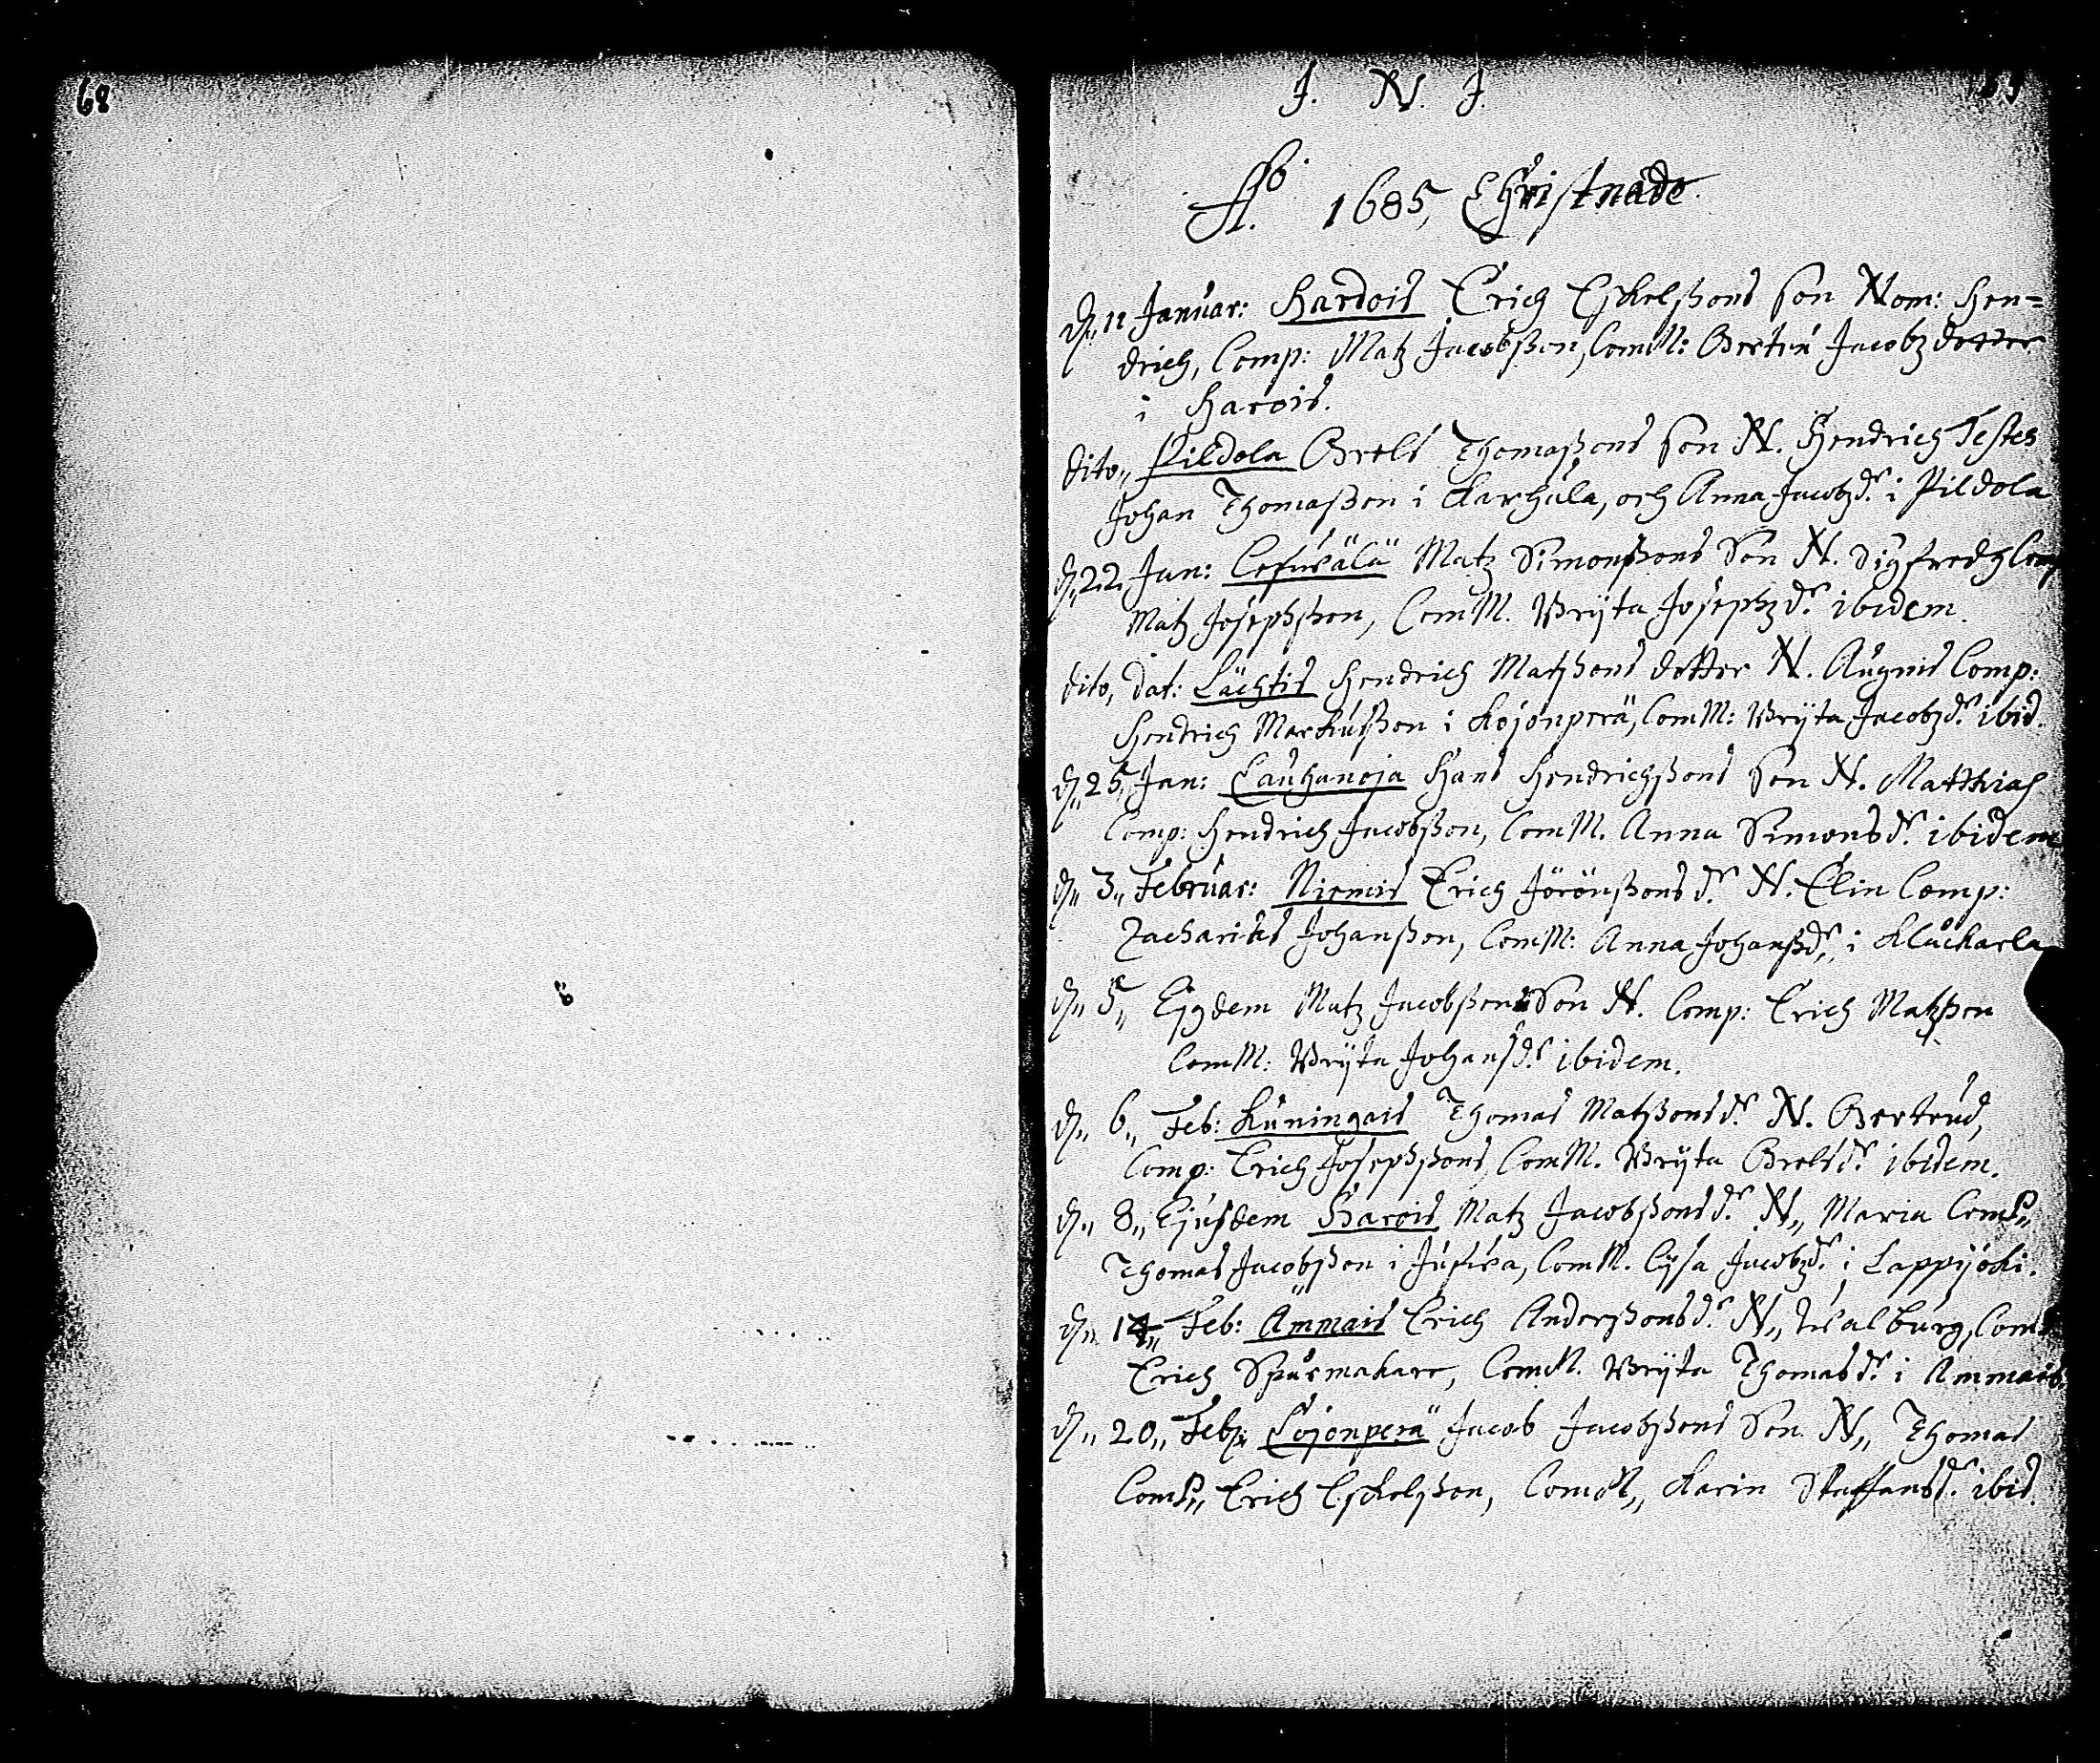 68
J. N. J.
Ao. 1685, Christnade.
D. 11 Januar: Hardois Erich Eskelßons son Nom: Hen=
drich, Comp: Matz Jacobßon, ComM: Jacobz dotter
i Harois.
Dito,, Pildola Brels Thomaßons son N. Hendrich Testes
Johan Thomaßon i Karhula, och Anna Jacobzdr. i Pildola
D. 22 Jan: Matz Simonßons Son N. Sigfredh Comp
Matz Josephßon, ComM. Bryta Josephzdr. ibidem.
Dito, dat: Lächtis Hendrich Matzßons dotter N. Augnis Comp:
Hendrich Markusßon i Kojonperä, ComM: Bryta Jacobzdr. ibid.
D. 25, Jan: Lauhanoja Hans Hendrichßons son N. Matthias
Comp: Hendrich Jacobßon, ComM. Anna Simonsdr. ibidem
D,, 3,, Februar: Niemis Erich Jörönßons dr. N. Elin Comp:
Zacharias Johanßon, ComM: Anna Johanßdr. i Kluckarla
D,, 5,, Ejgdem Matz Jacobßons Son N. Comp: Erich Matzßon
ComM: Bryta Johansdr. ibidem.
D,, 6,, Feb: Kuningais Thomas Matzßons dr. N. Bertrud,
Comp: Erich Josephßons, ComM. Bryta Brelsdr. ibidem.
D,, 8,, Ejusdem Harois Matz Jacobßons dr. N,, Maria ComP,,
Thomas Jacobßon i Jufwa, ComM. Lysa Jacobzdr. i Lappijoki.
D,, 14,, Feb: Ämmais Erich Anderßons dr. N,, Walburg, Com
Erich Spårmakare, ComM. Bryta Thomasdr. i Ammais.
D,, 20,, Feb: Lojonperä Jacob Jacobßons Son N,, Thomas
ComP,, Erich Eskelßon, ComM,, Karin Staffansdr. ibid.